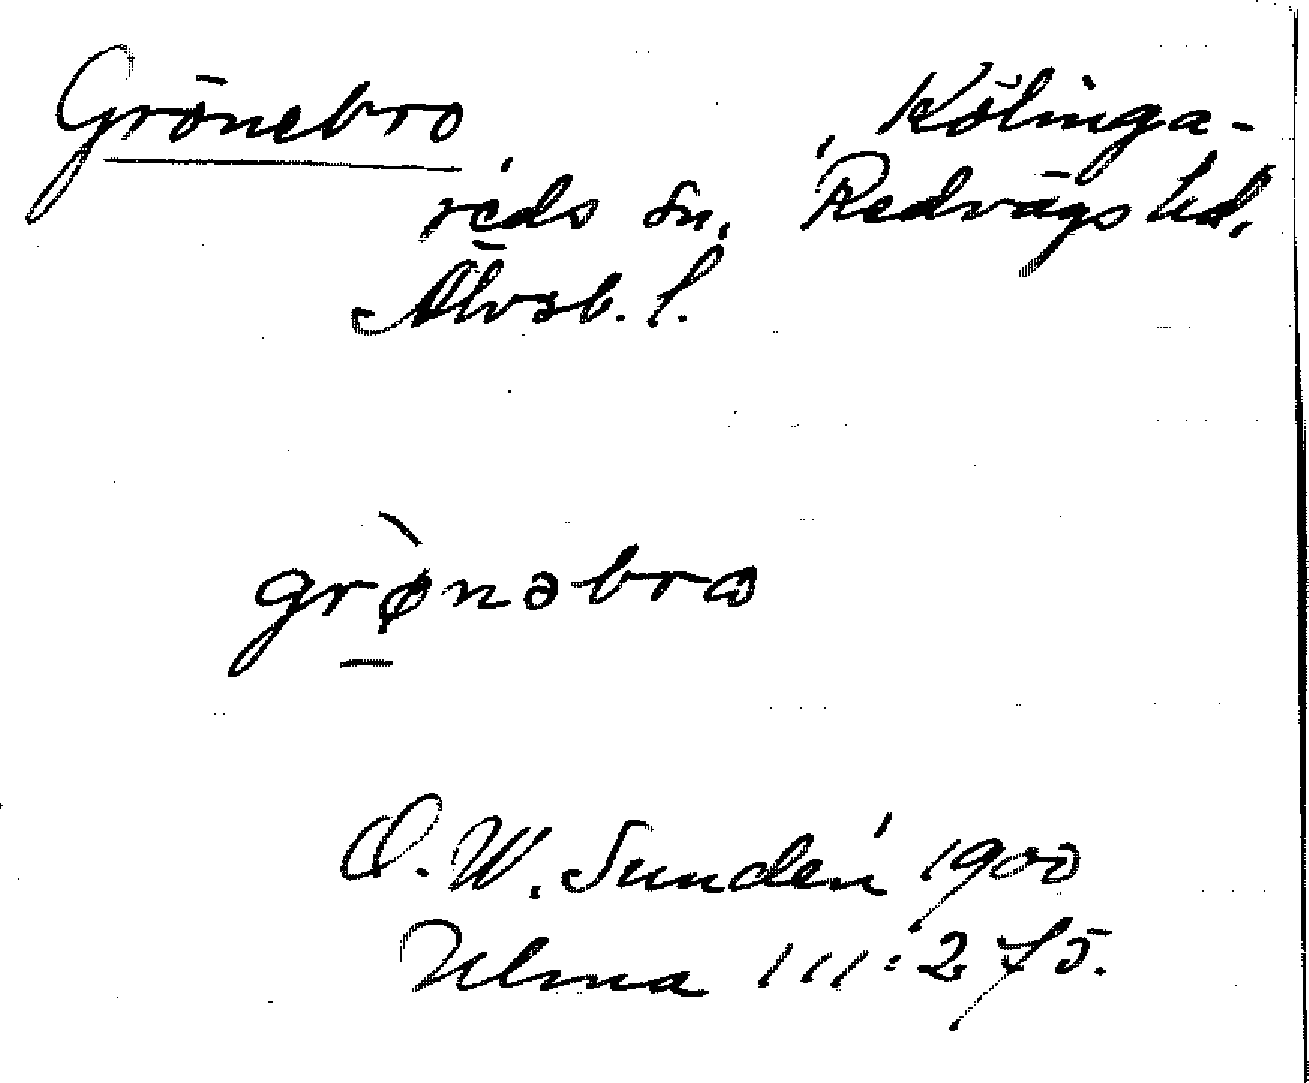 Grönebro Kölinga-
reds sn. Redvägs hd.
Älvsb. l.
grønəbro
O. W. Sundén 1900
Ulma 111:275.